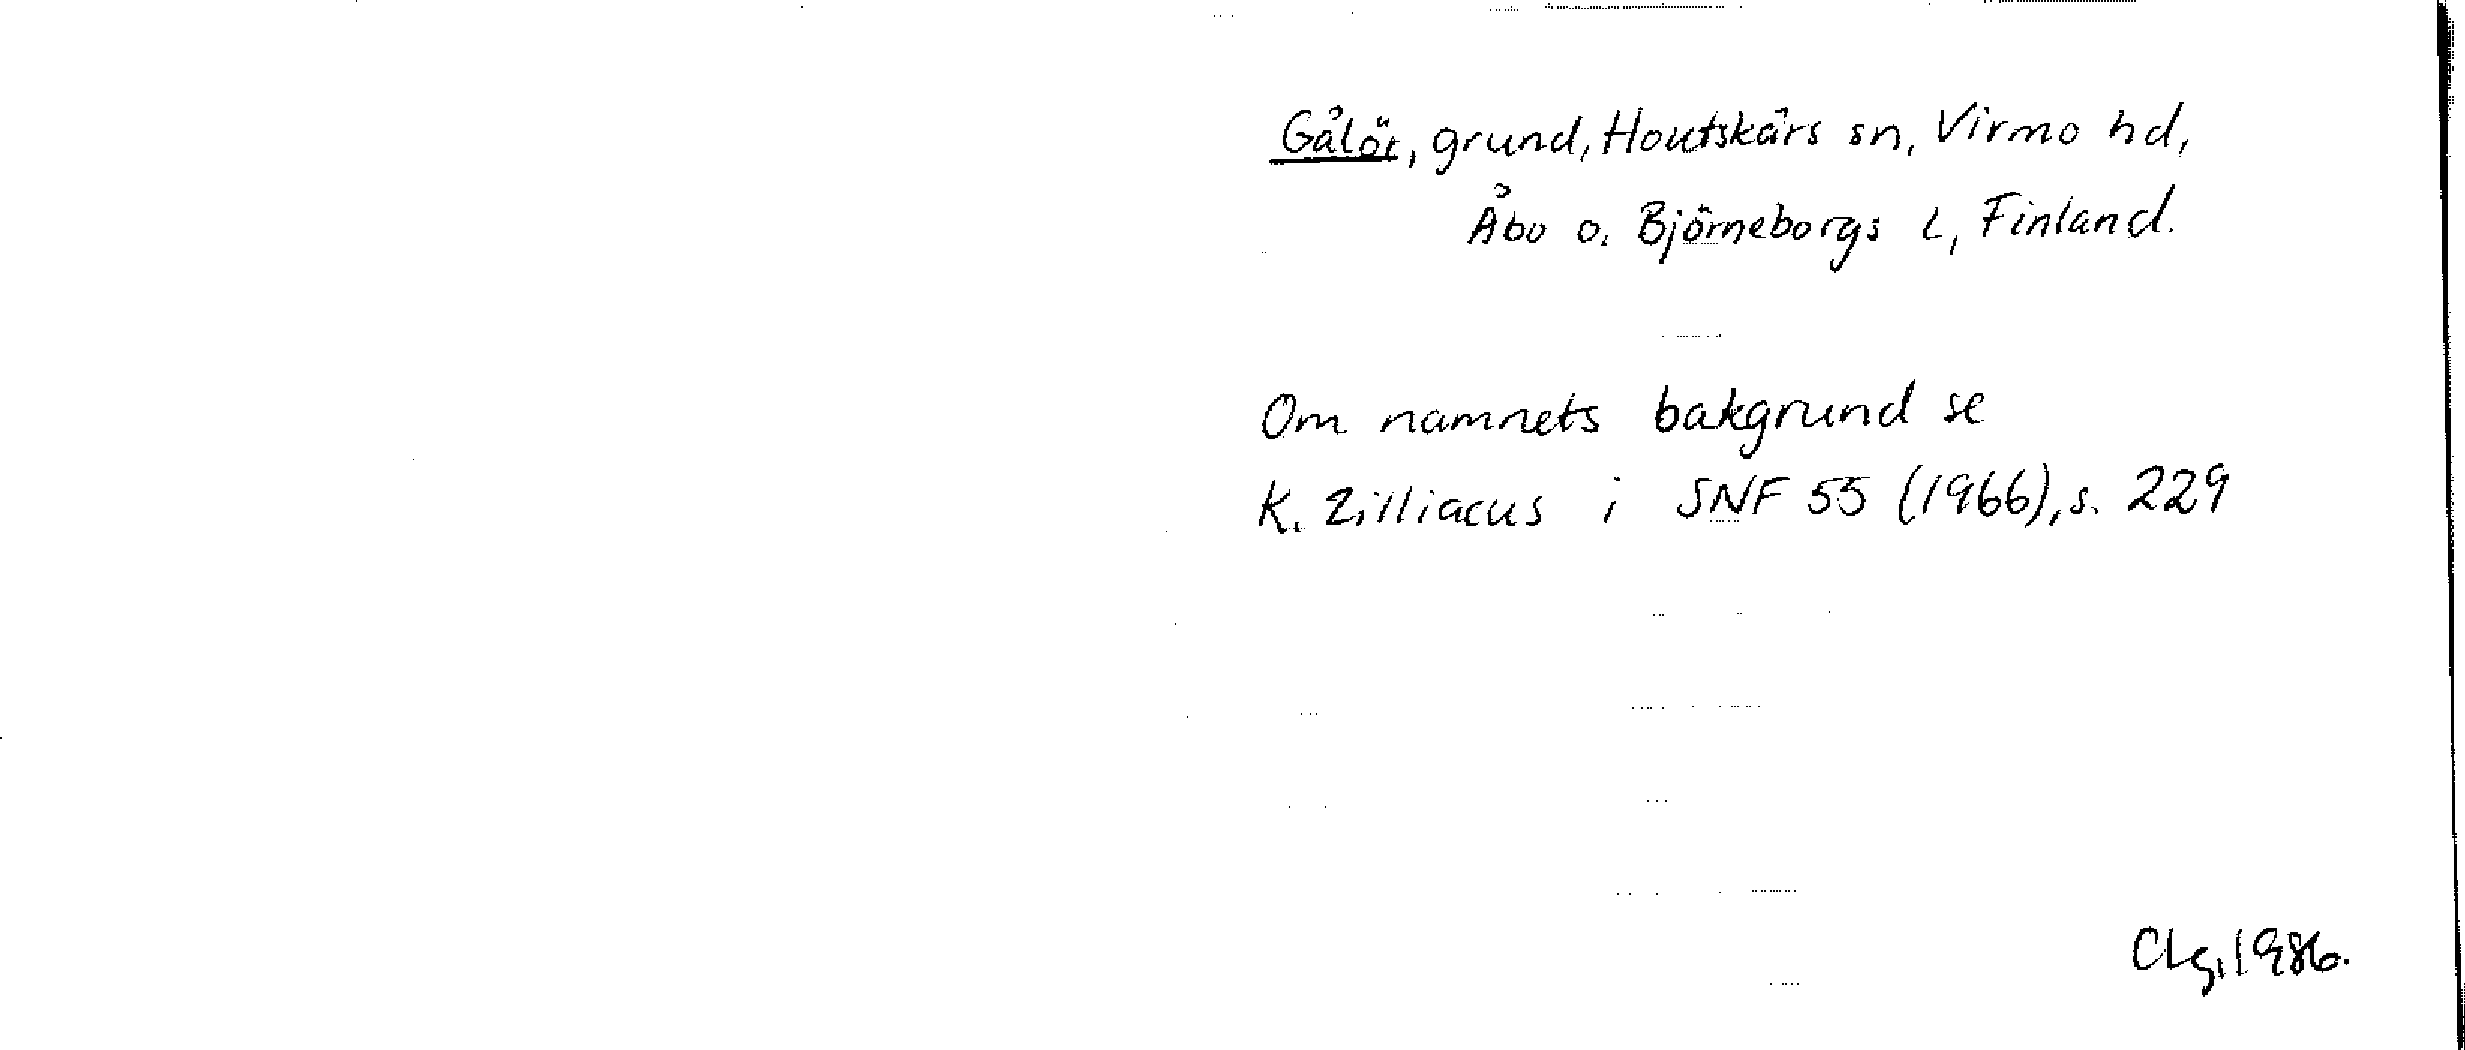 Gålör, grund, Houtskärs sn, Virmo hd,
Åbo o. Björneborgs l, Finland.
Om namnets bakgrund se
K. Zilliacus i SNF 55 (1966), s. 229
CLg, 1986.